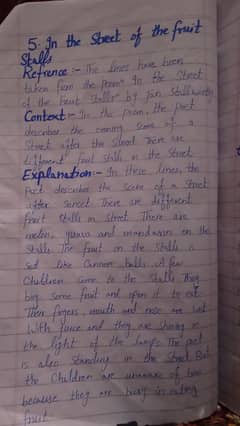 5. In the Street of the fruit
Stalls
Refrence :- The lines have been
taken from the Poem "In the Street
of the fruit Stalls" by Jan Stallworthy
Context :- In the poem, the poet
describe the evening scene of a
Street after the sunset There are
different fruit stalls in the street.
Explanation:- In these lines, the
Poet describe the scene of a street
after sunset There are different
fruit stalls in street. There are
melon, guava and mandarin on the
Stalls. The fruit on the Stalls is
set like Cannon balls. A few
Children come to the Stalls They
buy some fruit and open it to eat.
Their fingers, mouth and nose are wet
With juice and they are shining in
the light of the lamps. The poet
is also standing in the street. But
the Children are unaware of him
because they are busy in eating
fruit.